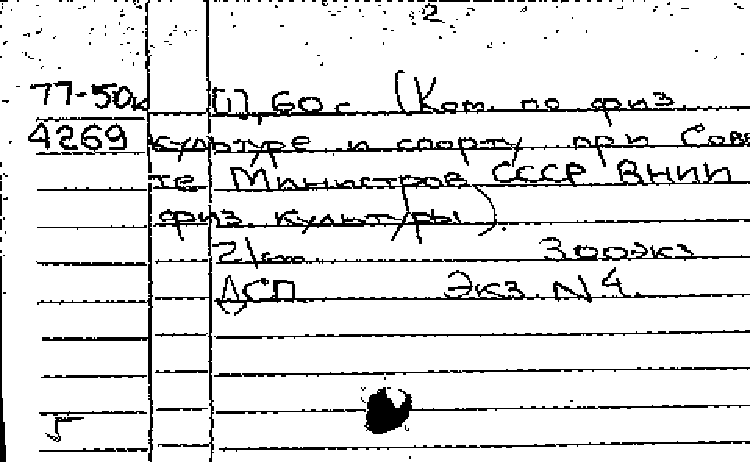 2
77-50к [1], 60 с. (Ком. по физ.
4269 культуре и спорту при Сове
те Министров СССР ВНИИ
физ. культуры).
21 см. 300 экз
ДСП Экз. N 4.
5